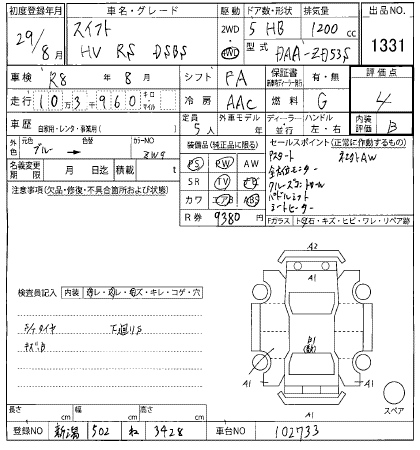 初度登録年月 車名・グレード 駆動 ドア数・形状 排気量 出品NO.
29/8月 スイフト HV RS DSBS 2WD 4WD 5 HB 1200 cc 1331
型式 DAA-ZD53S
車検 R8年 8月 シフト FA 保証書 有・無 評価点
走行 10万3千960 キロ マイル 冷房 AAC 燃料 G 4
車歴 自家用・レンタ・事業用( ) 定員 5人 外車モデル 年 ディーラー 並行 ハンドル 左・右 内装評価 B
外色 元色 ブルー → 色替 カラーNO ZWG
装備品(純正品に限る)
セールスポイント(正常に作動するもの)
名義変更期限 月 日迄 積載 t
PS PW AW
SR TV ナビ
カワ エアB ABS
R券 9380円
注意事項(欠品・修復・不具合箇所および状態)
Pスタート 社外AW
全方位モニター
クルーズコントロール
パドルシフト
シートヒーター
Fガラス トビ石・キズ・ヒビ・ワレ・リペア跡
検査員記入 内装 汚レ・スレ・キズ・キレ・コゲ・穴
シハタイヤ 下廻りS
キズ凹
A2
A1 A1
A1
A1 A1
スペア
長さ cm 幅 cm 高さ cm
登録NO 新潟 502 ね 3428 車台NO 102733